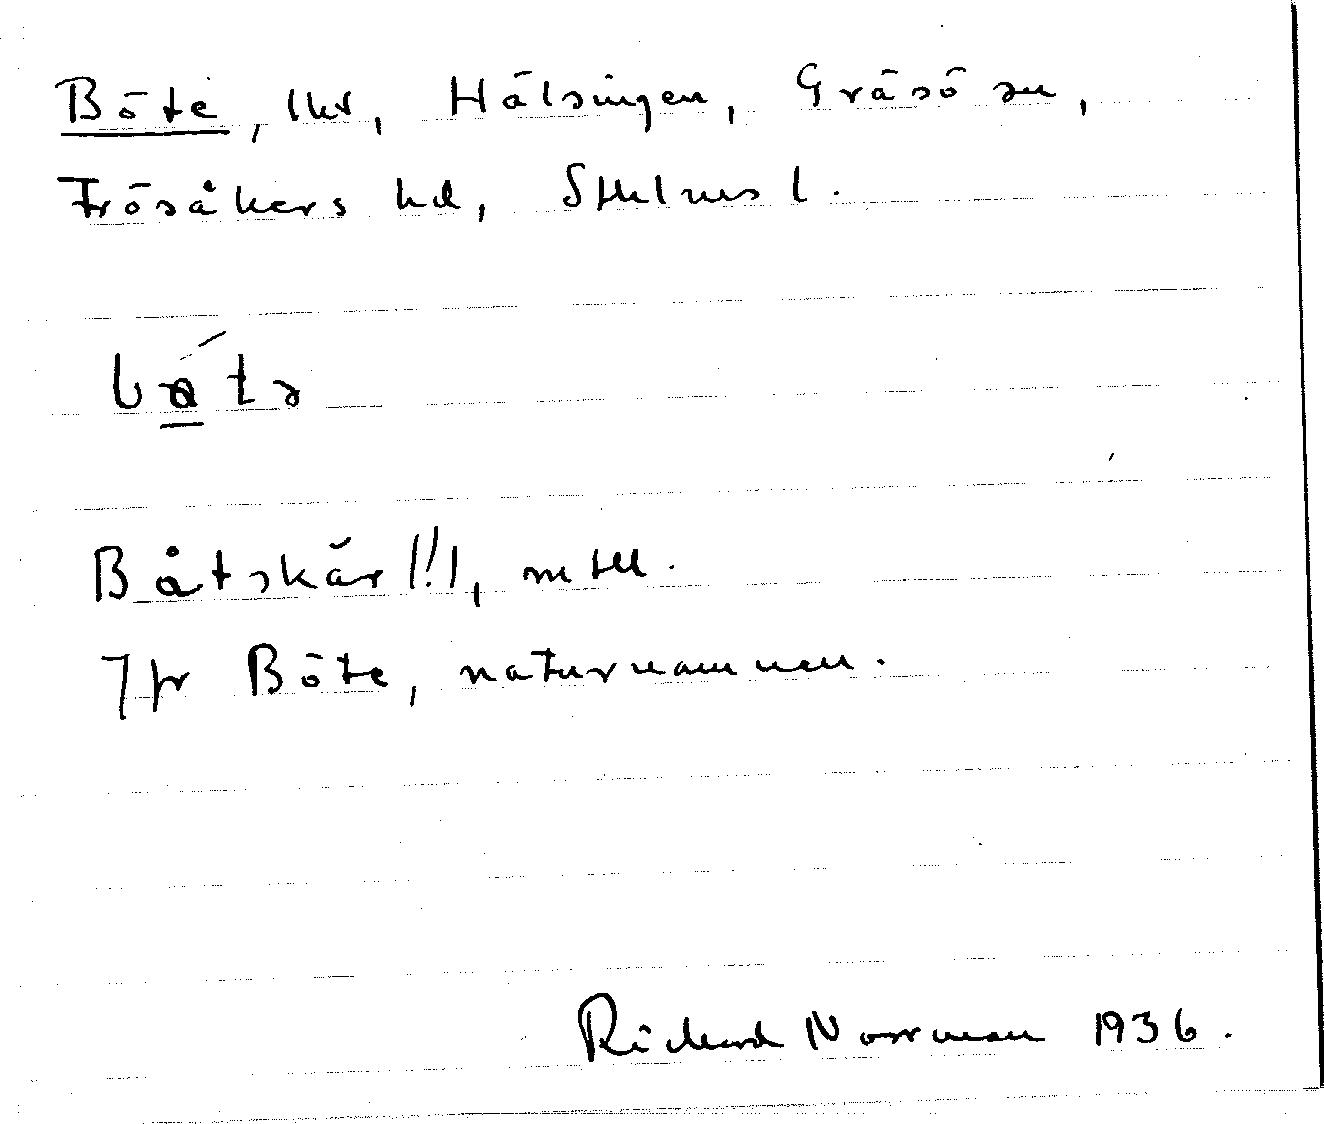 Böte, skr, Hälsingen, Gräsö sn,
Frösåkers hd, Sthlms l.
båtskär(!!), mtll.
Jfr Böte, naturnamnen.
Richard Norrman 1936.